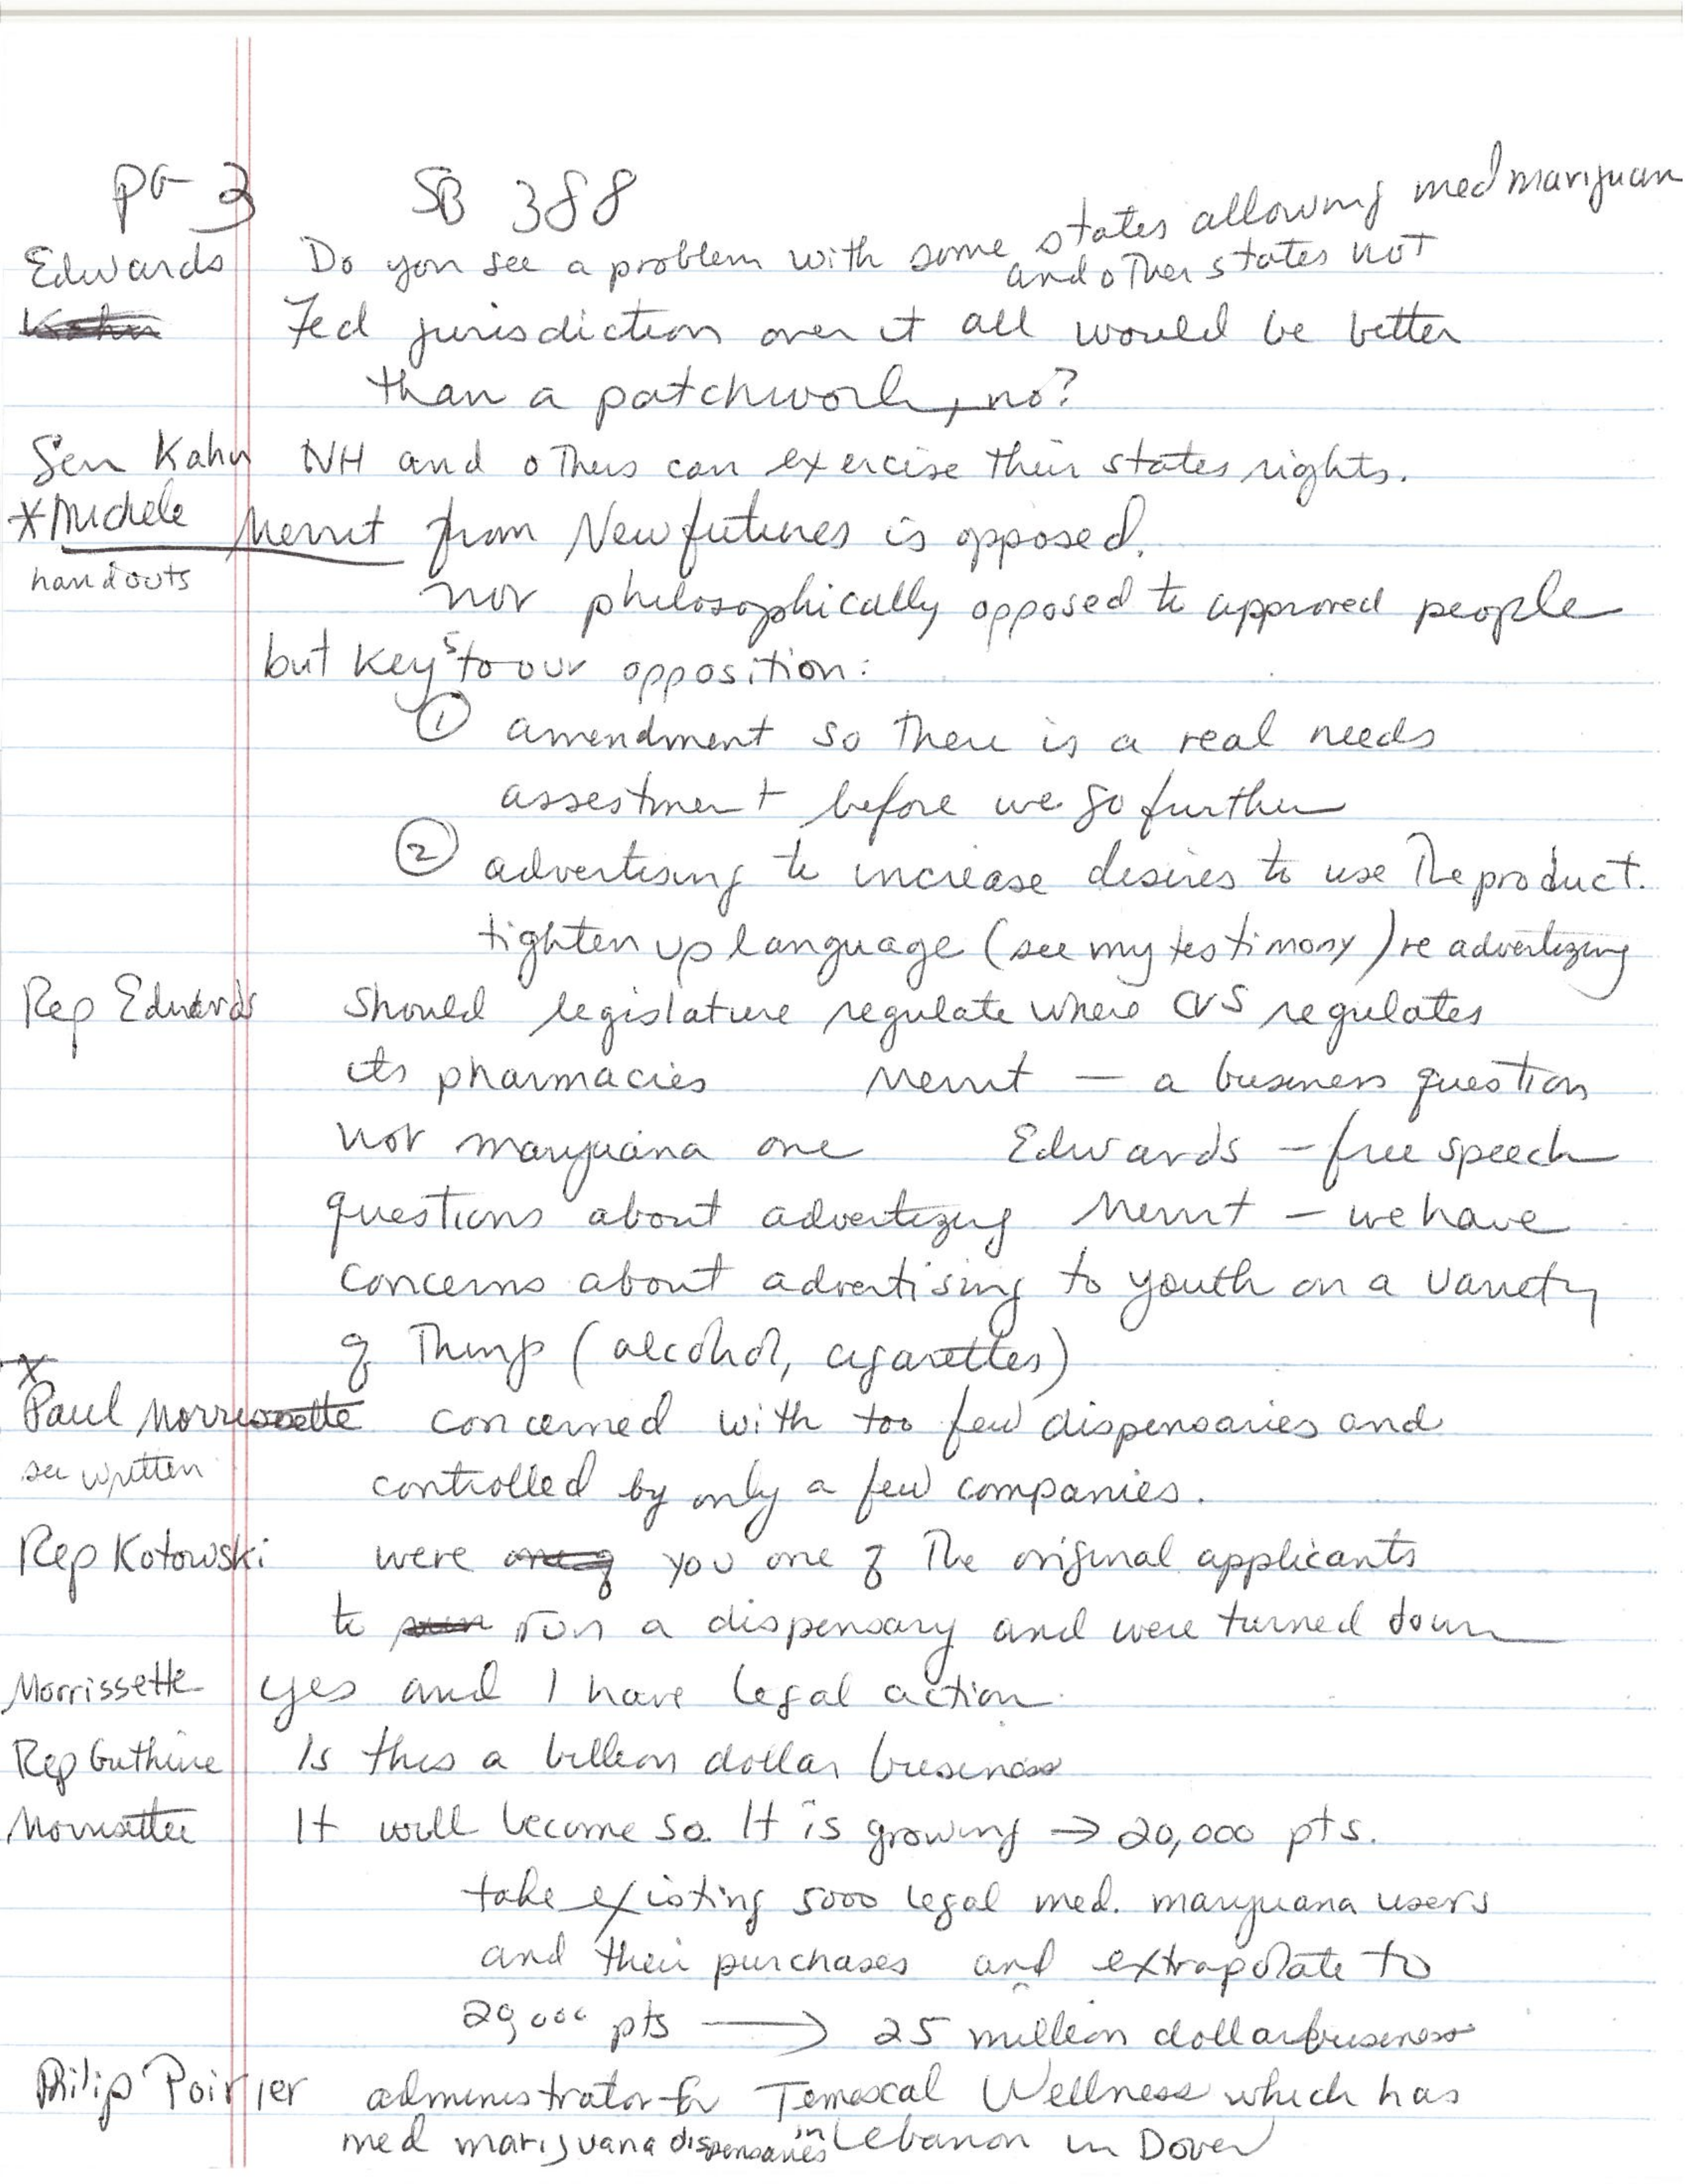 pg 3 SB 388
Edwards Do you see a problem with some states allowing med marijuan
and other states not
Kahn Fed jurisdiction over it all would be better
than a patchwork, no?
Sen Kahn NH and others can exercise their states rights.
*Michele Merrit from New futures is opposed.
handouts
not philosophically opposed to approved people
but keys to our opposition:
① amendment so there is a real needs
assestment before we go further
② advertising to increase desires to use the product.
tighten up language (see my testimony) re advertizing
Rep Edwards Should legislature regulate where CVS regulates
its pharmacies Merrit — a business question
not marijuana one Edwards — free speech
questions about advertizing Merrit — we have
concerns about advertising to youth on a variety
of things (alcohol, cigarettes)
*
Paul Morrissette concerned with too few dispensaries and
see written controlled by only a few companies.
Rep Kotowski were one of you one of the original applicants
to run a dispensary and were turned down
Morrissette yes and I have legal action.
Rep Guthrie Is this a billion dollar business
Morrissette It will become so. It is growing → 20,000 pts.
take existing 5000 legal med. marijuana users
and their purchases and extrapolate to
20,000 pts ⟶ 25 million dollar business
Philip Poirier administrator for Temescal Wellness which has
med marijuana dispensaries in Lebanon in Dover